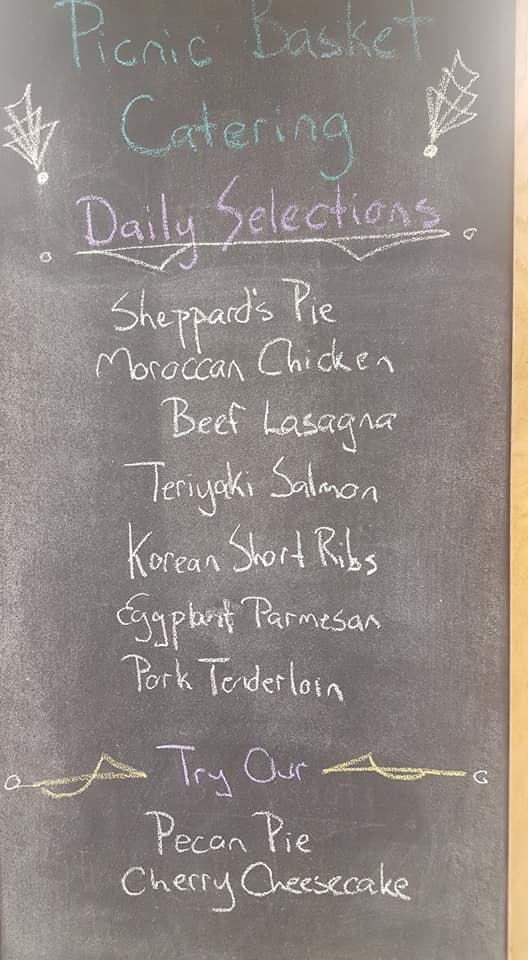 Picnic Basket
Catering
Daily Selections
Sheppard's Pie
Moroccan Chicken
Beef Lasagna
Teriyaki Salmon
Korean Short Ribs
Eggplant Parmesan
Pork Tenderloin
Try Our
Pecan Pie
Cherry Cheesecake